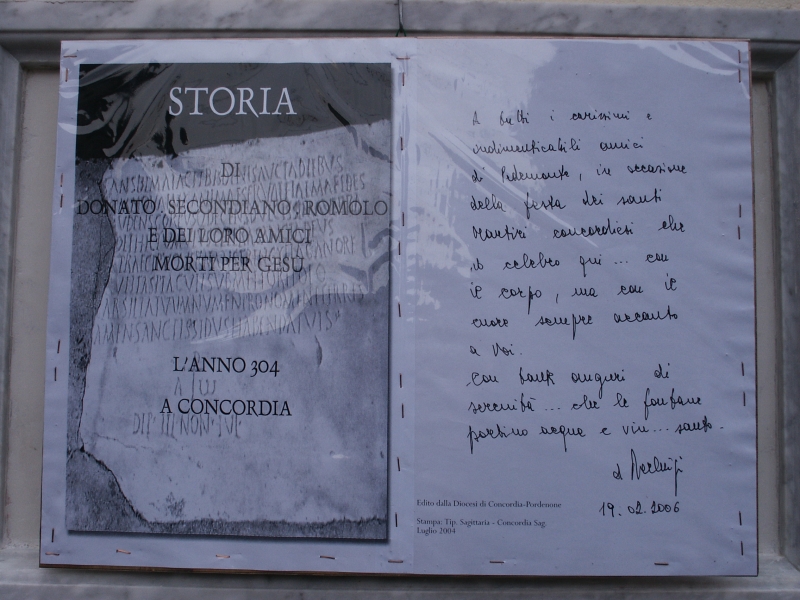 STORIA
DI
DONATO, SECONDIANO, ROMOLO
E DEI LORO AMICI
MORTI PER GESÙ
L'ANNO 304
A CONCORDIA
A tutti i carissimi e
indimenticabili amici
di Pedemonte, in occasione
della festa dei santi
Martiri concordiesi che
io celebro qui... con
il corpo, ma con il
cuore sempre accanto
a voi.
Con tanti auguri di
serenità... che le fontane
portino acqua e vin... santo.
d Pierluigi
19.02.2006
Edito dalla Diocesi di Concordia-Pordenone
Stampa: Tip. Sagittaria - Concordia Sag.
Luglio 2004